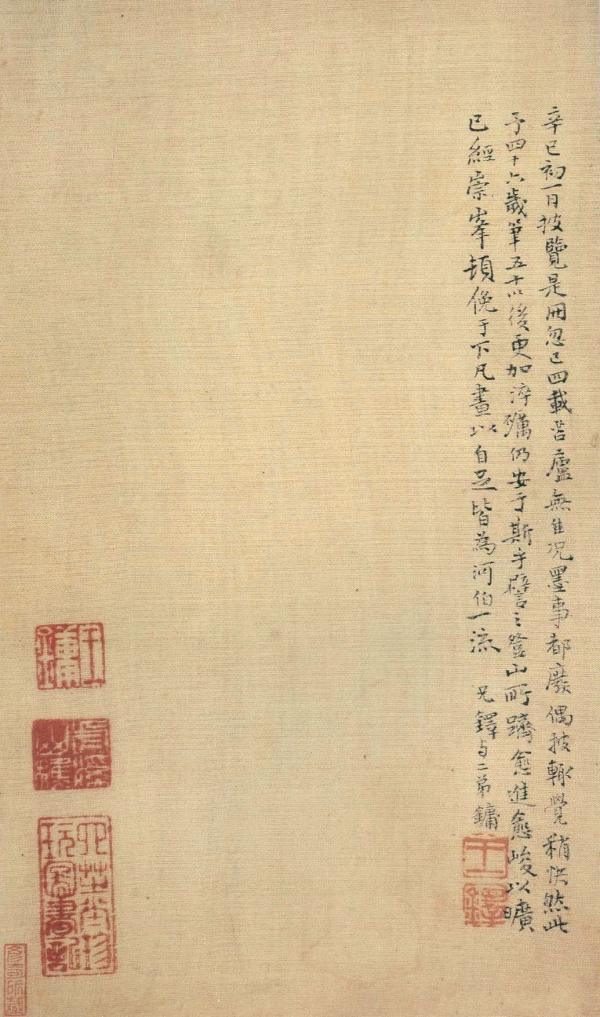 辛巳初一日披覽是冊忽已四載苫廬無佳况墨事都廢偶披輙覺稍快然此
予四十六歲筆五十以後更加淬礪仍安于斯乎譬之登山所躋愈進愈峻以曠
已經崇峯頓俛于下凡畫以自足皆為河伯一流 兄鐸与二弟鏞
王鐸
王鏞